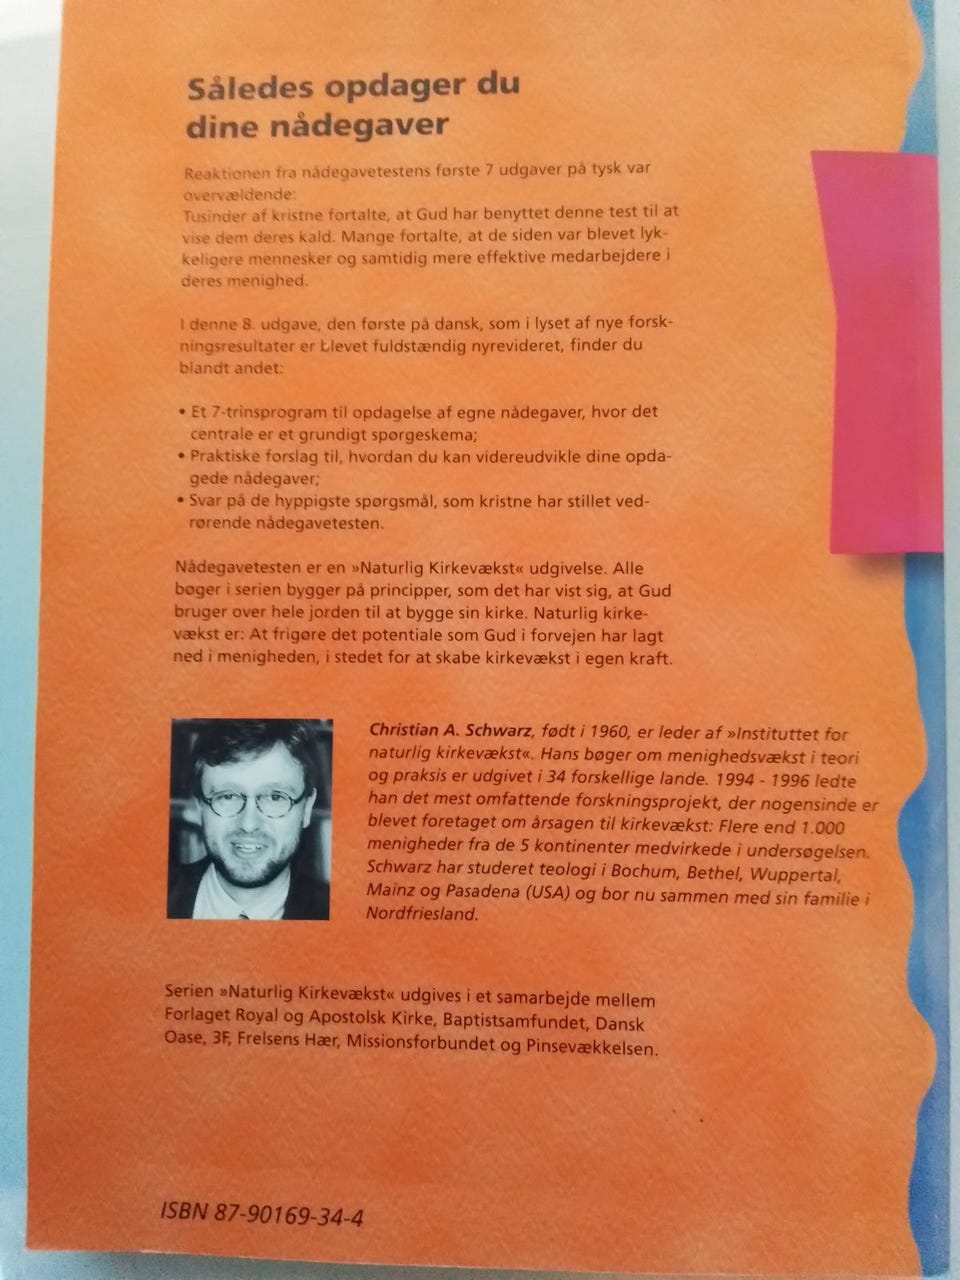 Således opdager du
dine nådegaver
Reaktionen fra nådegavetestens første 7 udgaver på tysk var
overvældende:
Tusinder af kristne fortalte, at Gud har benyttet denne test til at
vise dem deres kald. Mange fortalte, at de siden var blevet lyk-
keligere mennesker og samtidig mere effektive medarbejdere i
deres menighed.
I denne 8. udgave, den første på dansk, som i lyset af nye forsk-
ningsresultater er blevet fuldstændig nyrevideret, finder du
blandt andet:
• Et 7-trinsprogram til opdagelse af egne nådegaver, hvor det
centrale er et grundigt spørgeskema;
• Praktiske forslag til, hvordan du kan videreudvikle dine opda-
gede nådegaver;
• Svar på de hyppigste spørgsmål, som kristne har stillet ved-
rørende nådegavetesten.
Nådegavetesten er en »Naturlig Kirkevækst« udgivelse. Alle
bøger i serien bygger på principper, som det har vist sig, at Gud
bruger over hele jorden til at bygge sin kirke. Naturlig kirke-
vækst er: At frigøre det potentiale som Gud i forvejen har lagt
ned i menigheden, i stedet for at skabe kirkevækst i egen kraft.
Christian A. Schwarz, født i 1960, er leder af »Instituttet for
naturlig kirkevækst«. Hans bøger om menighedsvækst i teori
og praksis er udgivet i 34 forskellige lande. 1994 - 1996 ledte
han det mest omfattende forskningsprojekt, der nogensinde er
blevet foretaget om årsagen til kirkevækst: Flere end 1.000
menigheder fra de 5 kontinenter medvirkede i undersøgelsen.
Schwarz har studeret teologi i Bochum, Bethel, Wuppertal,
Mainz og Pasadena (USA) og bor nu sammen med sin familie i
Nordfriesland.
Serien »Naturlig Kirkevækst« udgives i et samarbejde mellem
Forlaget Royal og Apostolsk Kirke, Baptistsamfundet, Dansk
Oase, 3F, Frelsens Hær, Missionsforbundet og Pinsevækkelsen.
ISBN 87-90169-34-4